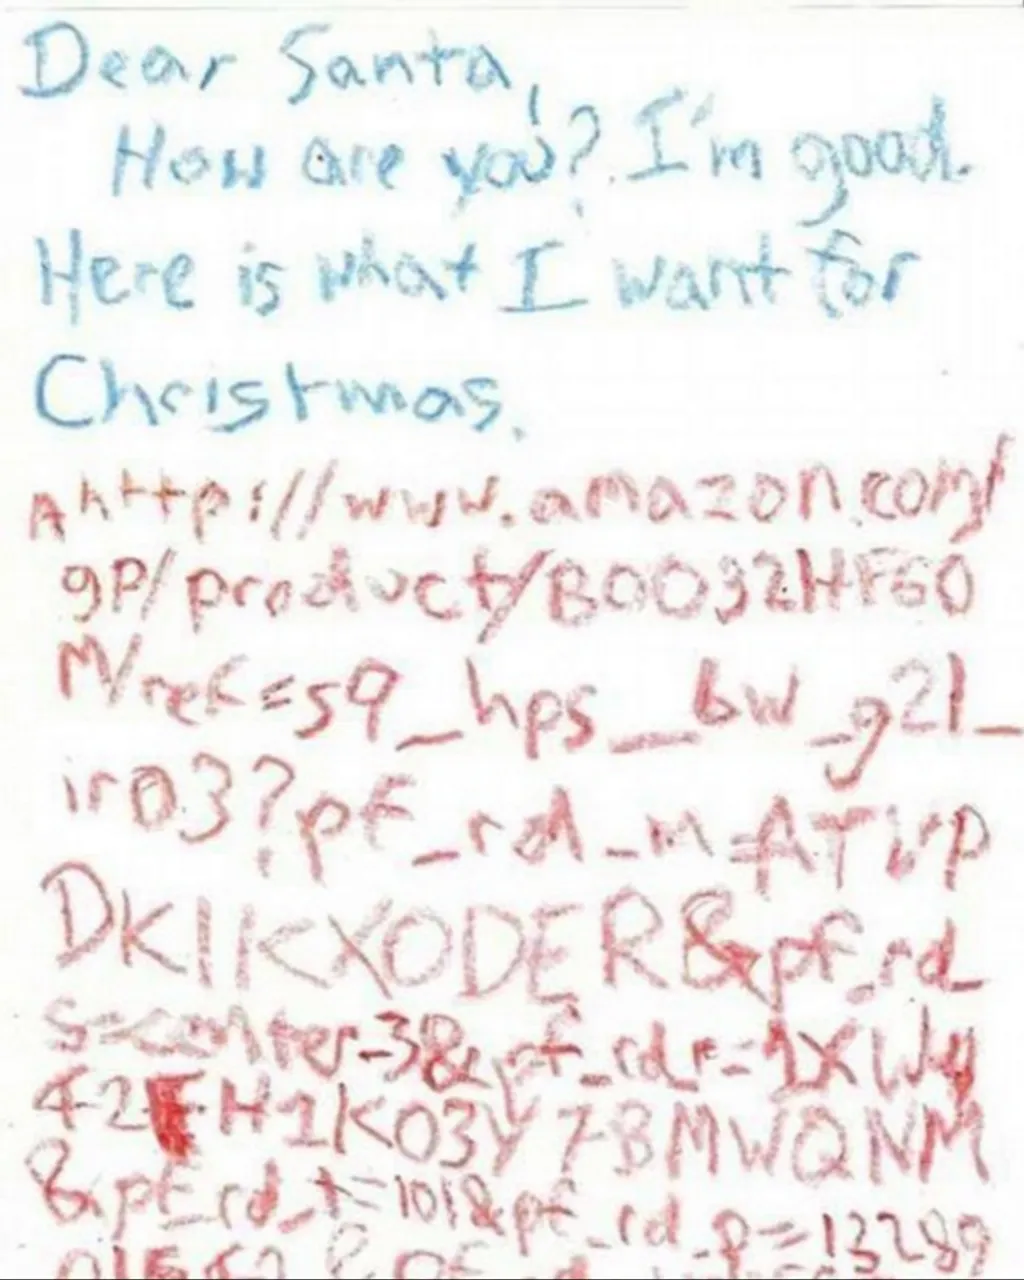 Dear Santa,
How are you? I'm good.
Here is what I want for
Christmas.
A http://www.amazon.com/
gp/product/B0032HF60
M/ref=s9_hps_bw_g21_
ir03?pf_rd_m=ATVP
DKIKX0DER&pf_rd_
s=center-3&pf_rd_r=1XWW
42FH1K03Y7BMWQNM
&pf_rd_t=101&pf_rd_p=13289